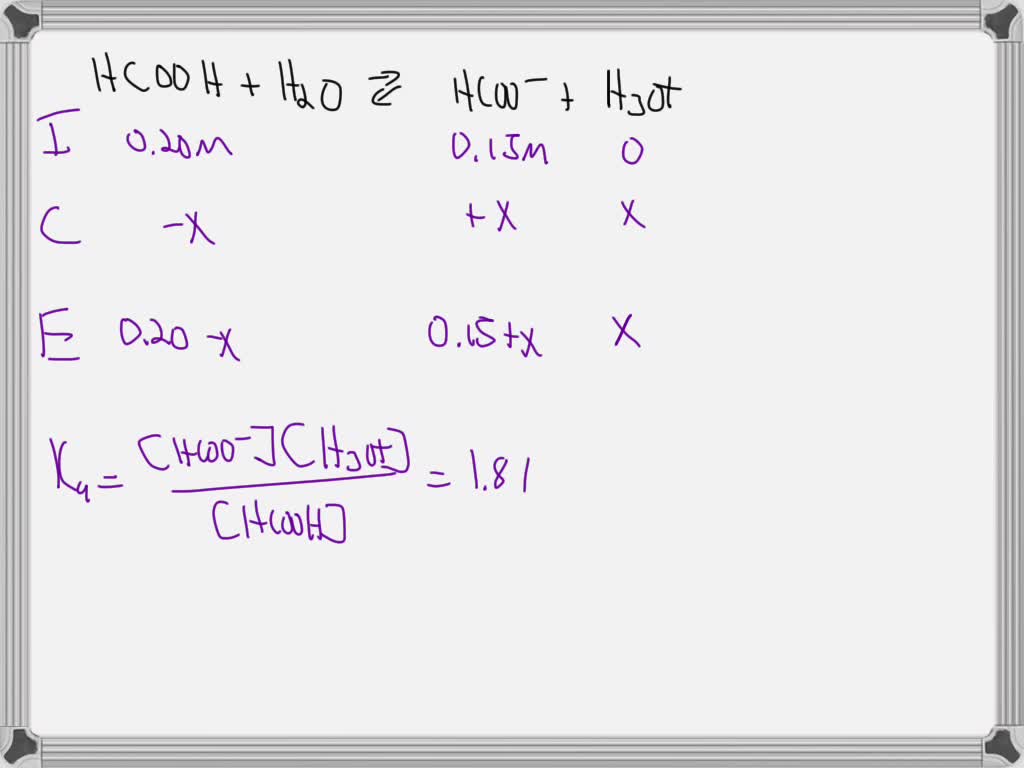 HCOOH + H₂O ⇌ HCOO⁻ + H₃O⁺
I 0.20M 0.15M 0
C -X +X X
E 0.20-X 0.15+X X
Ka = [HCOO⁻][H₃O⁺] / [HCOOH] = 1.81